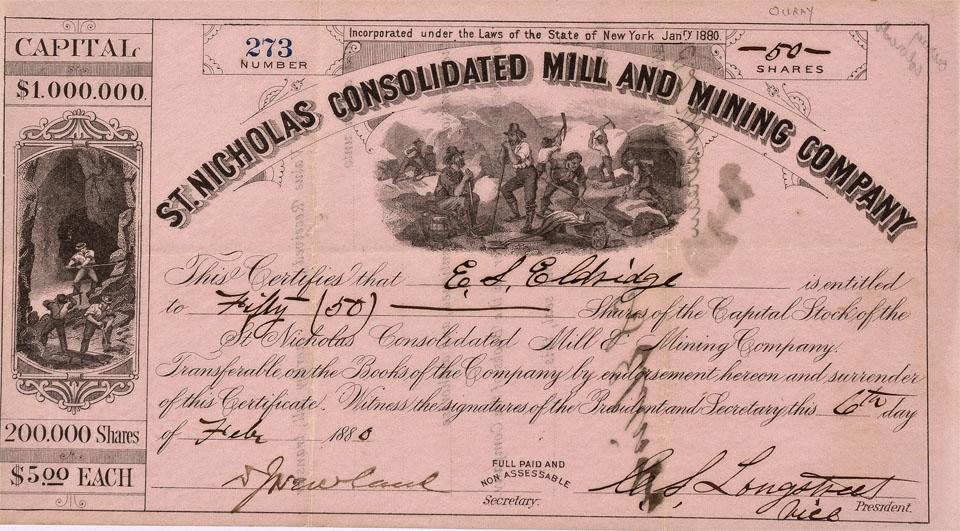 OURAY
CAPITAL
$1.000.000.
273
NUMBER
Incorporated under the Laws of the State of New York Jany. 1880.
—50—
SHARES
ST. NICHOLAS CONSOLIDATED MILL AND MINING COMPANY
This Certifies that E. S. Eldridge is entitled
to Fifty (50) Shares of the Capital Stock of the
St. Nicholas Consolidated Mill & Mining Company.
Transferable on the Books of the Company by endorsement hereon and surrender
of this Certificate. Witness the signatures of the President and Secretary this 6th day
of Feby 1880
200.000 Shares
$5.00 EACH
FULL PAID AND
NON ASSESSABLE
Secretary.
Longstreet
Vice President.